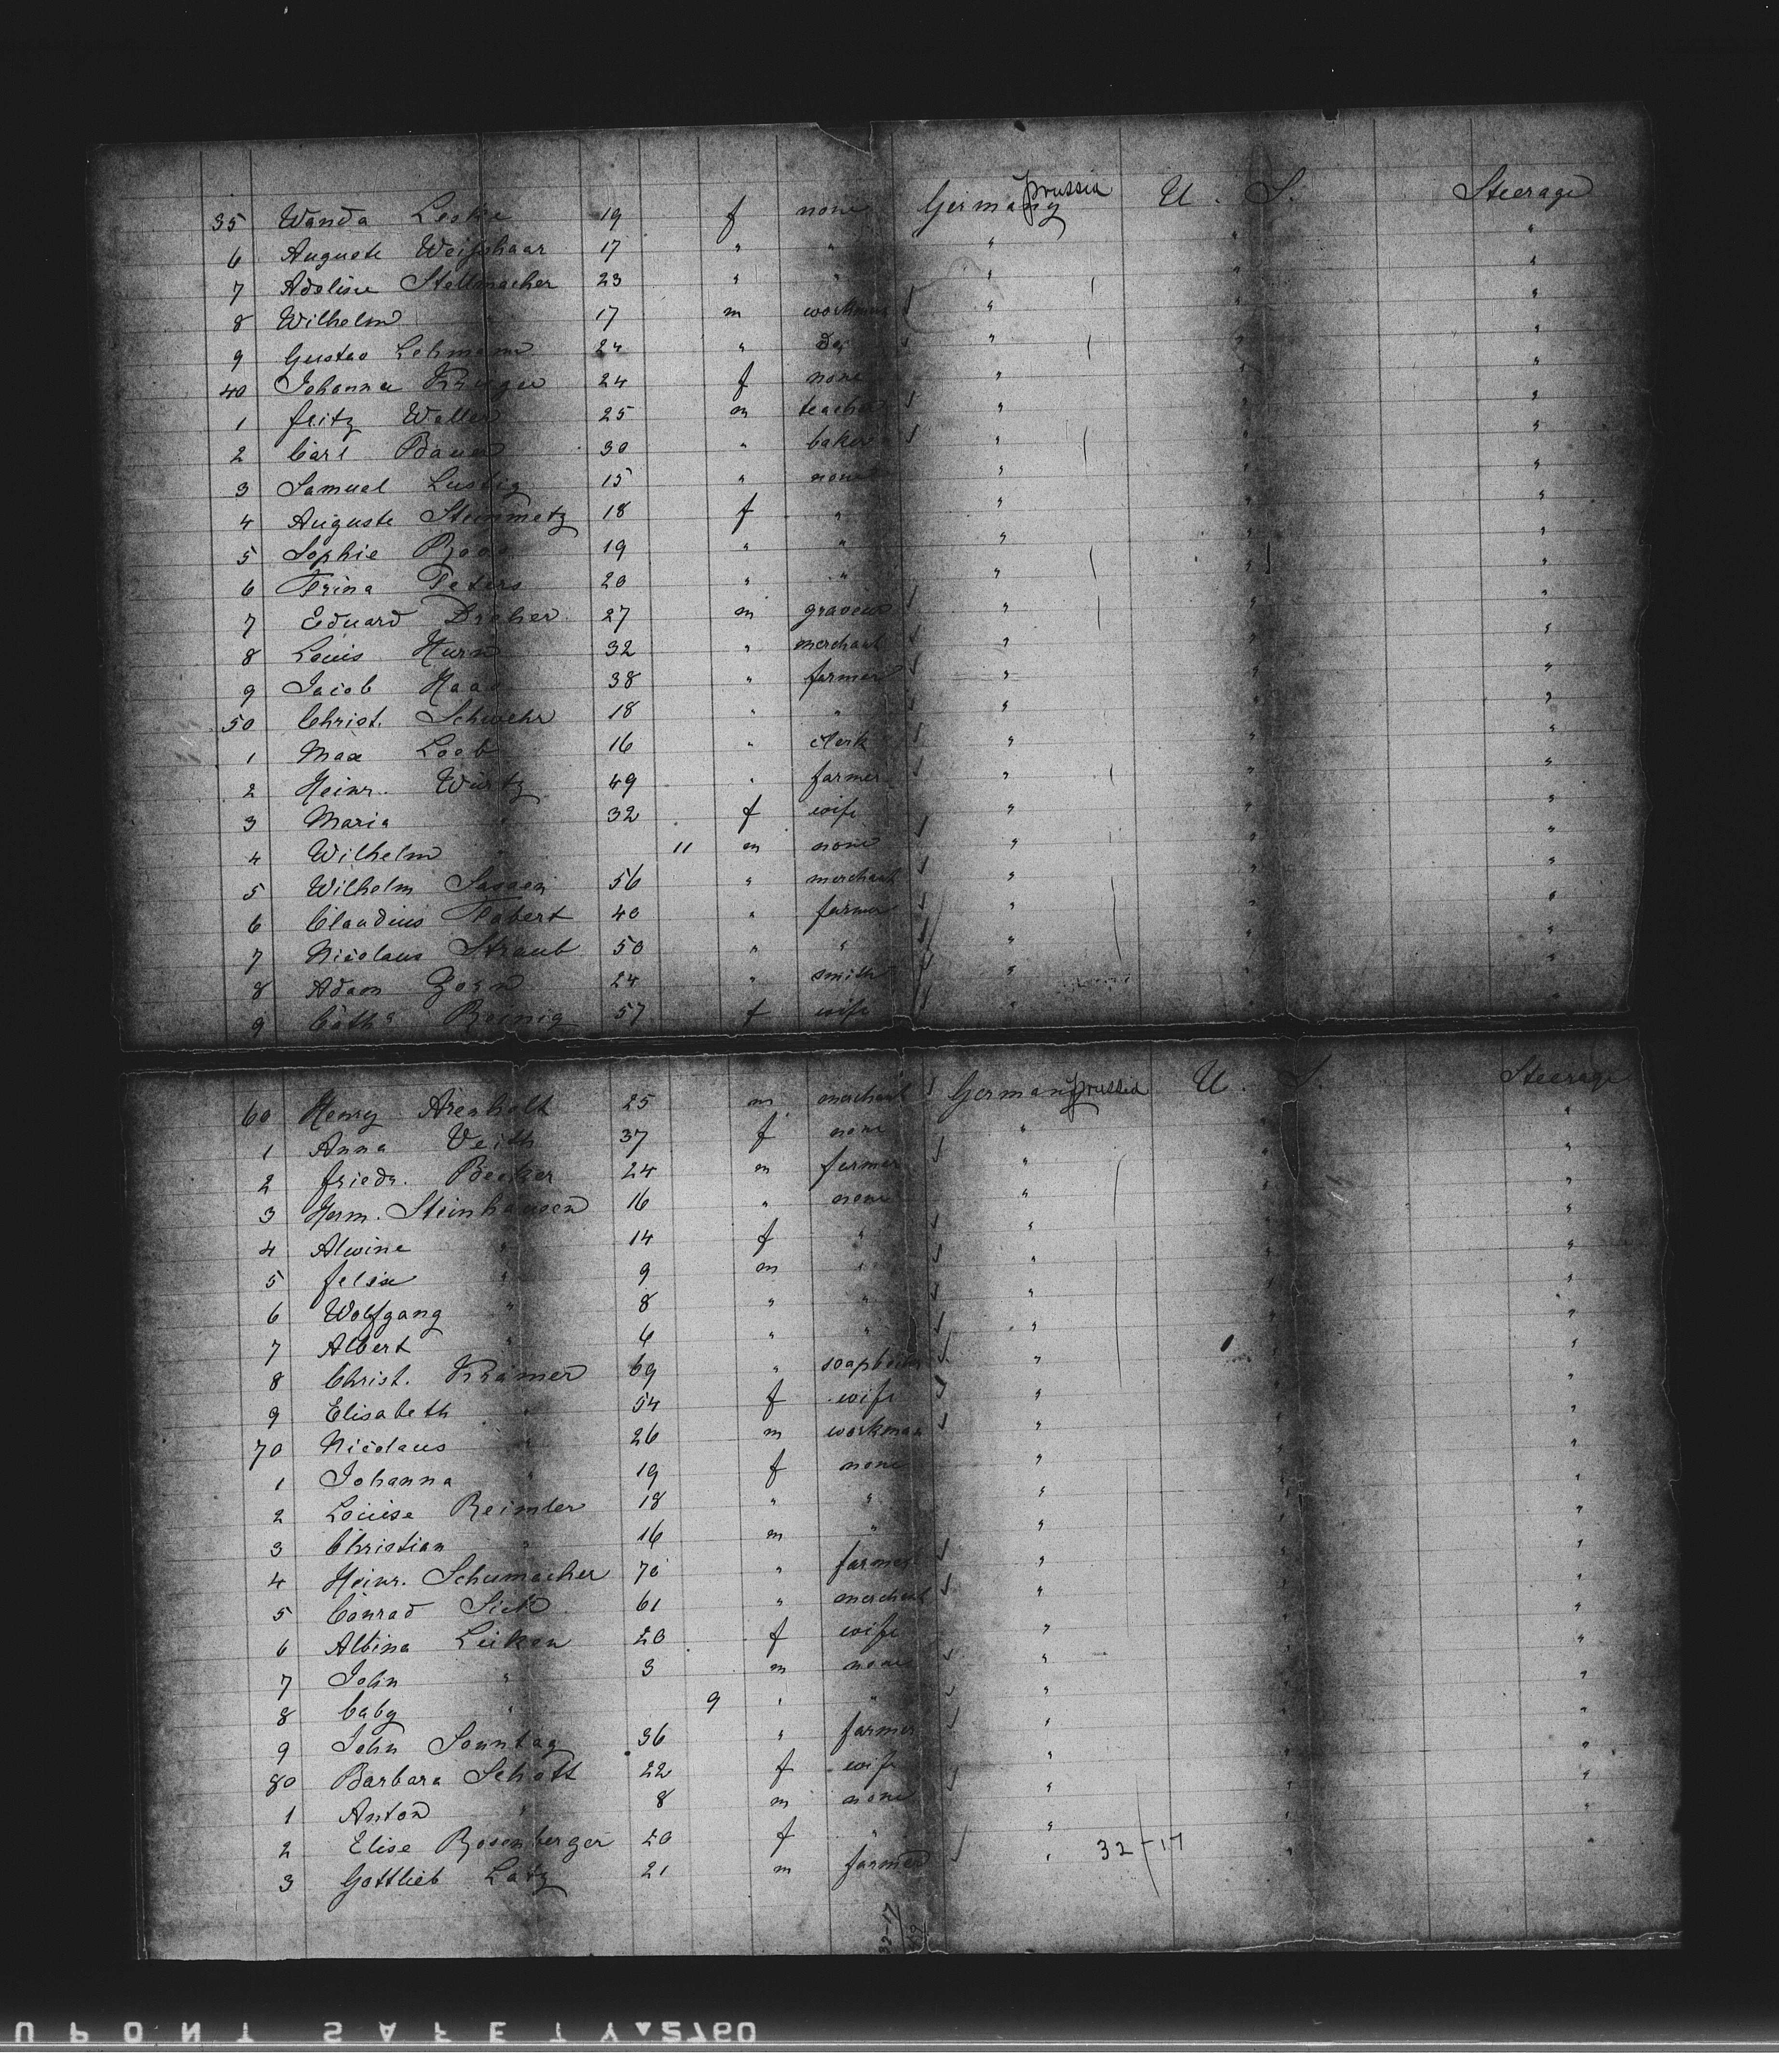 35 Wanda Leske 19 f none Germany prussia U. S. Steerage
6 Auguste Weisshaar 17 " " " " "
7 Adeline Stellmacher 23 " " " " "
8 Wilhelm " 17 m workman " " "
9 Gustav Lehmann 24 " do " " "
40 Johanna Kruger 24 f none " " "
1 Fritz Weller 25 m teacher " " "
2 Carl Bauer 30 " baker " " "
3 Samuel Lustig 15 " none " " "
4 Auguste Steinmetz 18 f " " " "
5 Sophie 19 " " " " "
6 Trina Peters 20 " " " " "
7 Eduard Dreher 27 m graveur " " "
8 Louis 32 " merchant " " "
9 Jacob Haas 38 " farmer " " "
50 Christ. Schwehr 18 " " " " "
1 Max Loeb 16 " clerk " " "
2 Heinr. Würtz 49 " farmer " " "
3 Maria " 32 f wife " " "
4 Wilhelm " 11 m none " " "
5 Wilhelm 56 " merchant " " "
6 Claudius Tabert 40 " farmer " " "
7 Nicolaus Straub 50 " " " " "
8 Adam Zorn 24 " smith " " "
9 Cath. Reinig 57 f wife " " "
60 Henry Arenholt 25 m merchant Germany prussia U. S. Steerage
1 Anna Veith 37 f none " " "
2 Friedr. Becker 24 m farmer " " "
3 Herm. Steinhausen 16 " none " " "
4 Alwine " 14 f " " " "
5 Felix " 9 m " " " "
6 Wolfgang " 8 " " " " "
7 Albert " 6 " " " " "
8 Christ. Krämer 69 " soapboiler " " "
9 Elisabeth " 54 f wife " " "
70 Nicolaus " 26 m workman " " "
1 Johanna " 19 f none " " "
2 Louise Reimler 18 " " " " "
3 Christian " 16 m " " " "
4 Heinr. Schumacher 70 " farmer " " "
5 Conrad Sick 61 " merchant " " "
6 Albina Lüken 20 f wife " " "
7 John " 3 m none " " "
8 baby " 9 " " " " "
9 John Sonntag 36 " farmer " " "
80 Barbara Schott 22 f wife " " "
1 Anton " 8 m none " " "
2 Elise Rosenberger 20 f " " " "
3 Gottlieb Lotz 21 m farmer " 32-17 "
32-17
UPONT SAFETY 2760